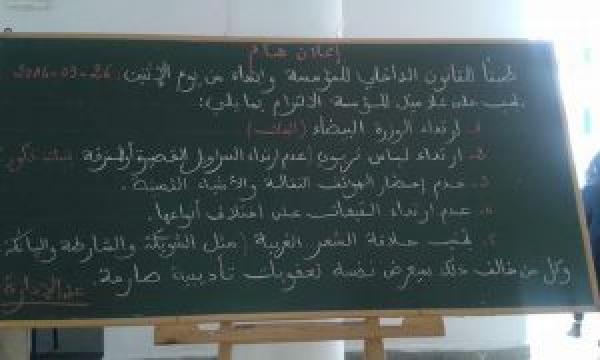 إعلان هام
طبقا للقانون الداخلي للمؤسسة وابتداء من يوم الإثنين: 26-09-2016
يجب على تلاميذ المؤسسة الالتزام بما يلي:
1. ارتداء الوزرة البيضاء (الفتيات)
2. ارتداء لباس تربوي (عدم ارتداء السراويل القصيرة أو الممزقة بنات ذكور
3. عدم إحضار الهواتف النقالة والأشياء الثمينة.
4. عدم ارتداء القبعات على اختلاف أنواعها.
5. يجب حلاقة الشعر الغريبة (مثل الشويكة والشارطة و
وكل من خالف ذلك يعرض نفسه لعقوبات تأديبية صارمة.
عن الإدارة